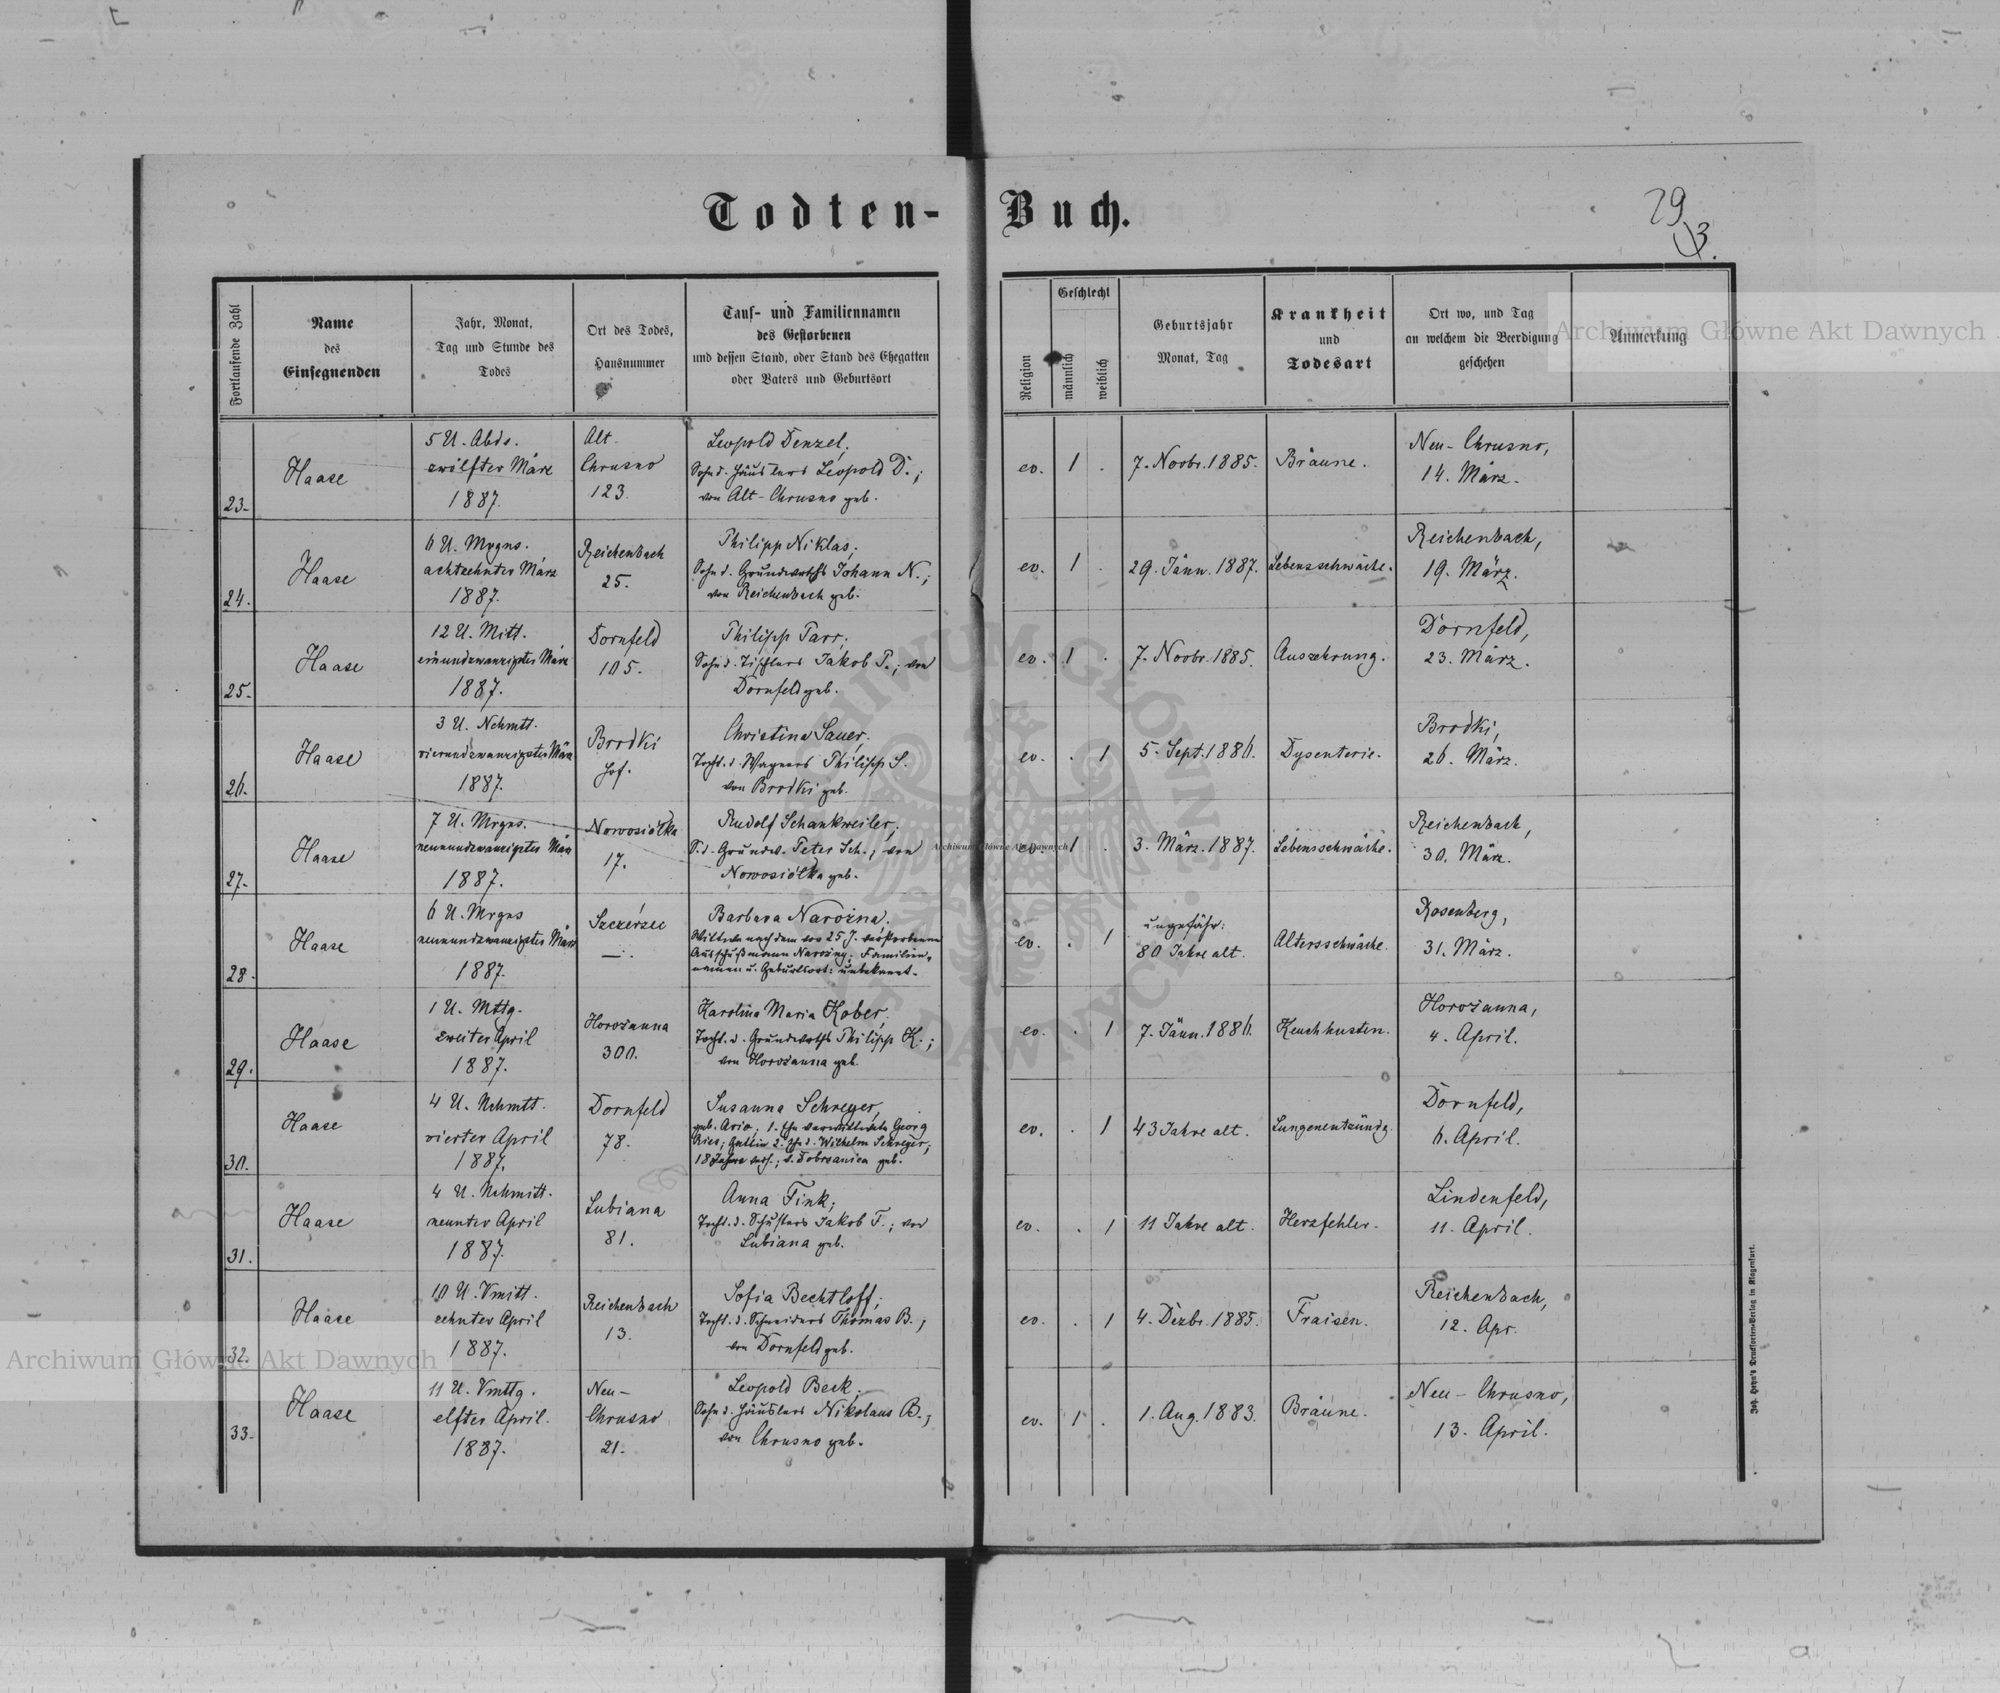 Todten-Buch.
29
3.
Fortlaufende Zahl
Name
des
Einsegnenden
Jahr, Monat,
Tag und Stunde des
Todes
Ort des Todes,
Hausnummer
Tauf- und Familiennamen
des Gestorbenen
und dessen Stand, oder Stand des Ehegatten
oder Vaters und Geburtsort
Religion
Geschlecht
männlich
weiblich
Geburtsjahr
Monat, Tag
Krankheit
und
Todesart
Ort wo, und Tag
an welchem die Beerdigung
geschehen
Anmerkung
Archiwum Główne Akt Dawnych
23.
Haase
5 U. Abds.
zwölfter März
1887.
Alt-
Chrusno
123.
Leopold Denzel,
Sohn d. Häuslers Leopold D.;
von Alt-Chrusno geb.
ev. 1 .
7. Novbr. 1885.
Bräune.
Neu-Chrusno,
14. März.
24.
Haase
6 U. Mrgns.
achtzehnter März
1887.
Reichenbach
25.
Philipp Niklas;
Sohn d. Grundwirths Johann N.;
von Reichenbach geb.
ev. 1 .
29. Jänn. 1887.
Lebensschwäche.
Reichenbach,
19. März.
25.
Haase
12 U. Mitt.
einundzwanzigster März
1887.
Dornfeld
105.
Philipp Parr;
Sohn d. Tischlers Jakob P.; von
Dornfeld geb.
ev. 1 .
7. Novbr. 1885.
Auszehrung.
Dornfeld,
23. März.
26.
Haase
3 U. Nchmtt.
vierundzwanzigster März
1887.
Brodki
Hof.
Christina Sauer,
Tocht. d. Wagners Philipp S.
von Brodki geb.
ev. . 1
5. Sept. 1886.
Dysenterie.
Brodki,
26. März.
27.
Haase
7 U. Mrgns.
neunundzwanzigster März
1887.
Nowosiółka
17.
Rudolf Schankweiler,
S. d. Grundw. Peter Sch.; von
Nowosiółka geb.
Archiwum Główne Akt Dawnych
ev. 1 .
3. März. 1887.
Lebensschwäche.
Reichenbach,
30. März.
28.
Haase
6 U. Mrgns
neunundzwanzigster März
1887.
Szczérzec
—.
Barbara Narožna.
Wittwe nach dem vor 25 J. verstorbenen
Narožny; Familien-
namen u. Geburtsort: unbekannt.
ev. . 1
ungefähr:
80 Jahre alt.
Altersschwäche.
Rosenberg,
31. März.
29.
Haase
1 U. Mttg.
zweiter April
1887.
Horožanna
300.
Karolina Maria Kober,
Tocht. d. Grundwirths Philipp K.;
von Horožanna geb.
ev. . 1
7. Jänn. 1886.
Keuchhusten.
Horožanna,
4. April.
30.
Haase
4 U. Nchmtt.
vierter April
1887.
Dornfeld
78.
Susanna Schreyer,
geb. 1. Ehe verwittwete Georg
Gattin 2. Ehe d. Wilhelm Schreyer;
18 Jahre verh.; v. Dobrzanica geb.
ev. . 1
43 Jahre alt.
Lungenentzündg.
Dornfeld,
6. April.
31.
Haase
4 U. Nchmitt.
neunter April
1887.
Lubiana
81.
Anna Fink;
Tocht. d. Schusters Jakob F.; von
Lubiana geb.
ev. . 1
11 Jahre alt.
Herzfehler.
Lindenfeld,
11. April.
32.
Haase
10 U. Vmitt.
zehnter April
1887.
Reichenbach
13.
Sofia Bechtloff;
Tocht. d. Schneiders Thomas B.;
von Dornfeld geb.
ev. . 1
4. Dezbr. 1885.
Fraisen.
Reichenbach,
12. Apr.
33.
Haase
11 U. Vmttg.
elfter April.
1887.
Neu-
Chrusno
21.
Leopold Beck,
Sohn d. Häuslers Nikolaus B.,
von Chrusno geb.
ev. 1 .
1. Aug. 1883.
Bräune.
Neu-Chrusno,
13. April.
Joh. Heyn's Drucksorten-Verlag in Klagenfurt.
Archiwum Główne Akt Dawnych
ARCHIWUM GŁÓWNE AKT DAWNYCH